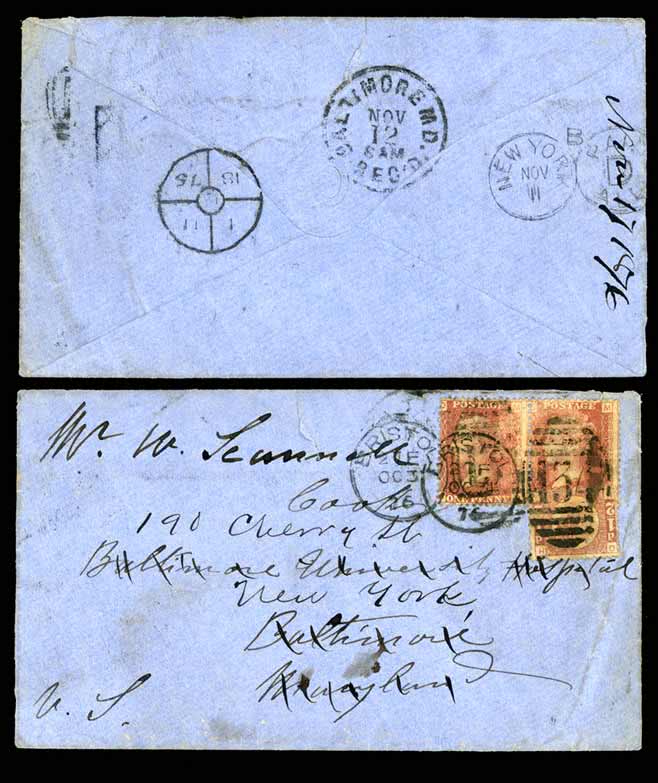 BALTIMORE MD.
NOV
12
8AM
REC'D
NEW YORK
NOV
11
18 75
1 11
Nov 17 1876
Mr. W. Scannell
Cook
190 Cherry St
Baltimore University Hospital
New York
Baltimore
Maryland
U. S.
BRISTOL
OC 3
76
BRISTOL
OC
76
POSTAGE
ONE PENNY
POSTAGE
134